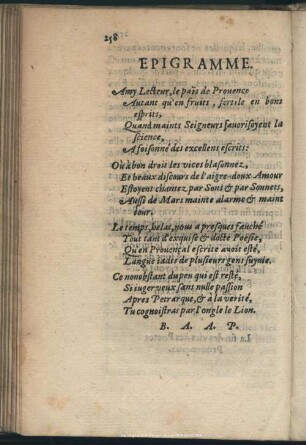 258
EPIGRAMME.
Amy Lecteur, le païs de Prouence
Autant qu'en fruits, fertile en bons
esprits,
Quand maints Seigneurs fauorisoyent la
science,
Assoisonné des excellent escrits:
Où à bon drois les vices blasonnez,
Et beaux discours de l'aigre-doux Amour
Estoyent chantez par Sons & par Sonnets,
Aussi de Mars mainte alarme & maint
tour.
Le temps, helas, nous a presques fauché
Tout tant d'exquise & docte Poësie,
Qu'en Prouençal escrite auoit esté,
Langue iadis de plusieurs gens suyuie.
Ce nonobstant du peu qui est resté,
Si iuger veux sans nulle passion
Apres Petrarque, & à la verité,
Tu cognoistras par l'ongle le Lion.
B. A. A. P.